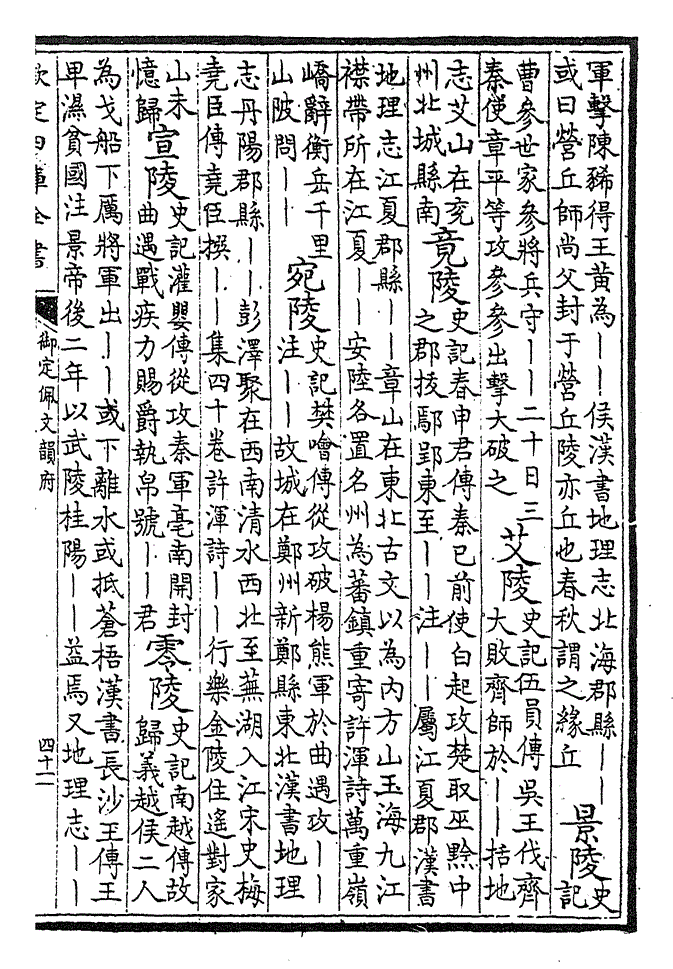 軍擊陳豨得王黃為——侯漢書地理志北海郡縣——
或曰營丘師尚父封于營丘陵亦丘也春秋謂之緣丘
景陵
史
記
曹參世家參將兵守——二十日三
秦使章平等攻參參出擊大破之
艾陵
史記伍員傳吳王伐齊
大敗齊師於——括地
志艾山在兗
州北城縣南
竟陵
史記春申君傳秦已前使白起攻楚取巫黔中
之郡拔鄢郢東至——注——屬江夏郡漢書
地理志江夏郡縣——章山在東北古文以為内方山玉海九江
襟帶所在江夏——安陸各置名州為蕃鎮重寄許渾詩萬重嶺
嶠辭衡岳千里
山陂問——
宛陵
史記樊噲傳從攻破楊熊軍於曲遇攻——
注——故城在鄭州新鄭縣東北漢書地理
志丹陽郡縣——彭澤聚在西南清水西北至蕪湖入江宋史梅
堯臣傳堯臣撰——集四十卷許渾詩——行樂金陵住遙對家
山未
憶歸
宣陵
史記灌嬰傳從攻秦軍亳南開封
曲遇戰疾力賜爵執帛號——君
零陵
史記南越傳故
歸義越侯二人
為戈船下厲將軍出——或下離水或抵蒼梧漢書長沙王傳王
卑濕貧國注景帝後二年以武陵桂陽——益焉又地理志——
欽定四庫全書
御定佩文韻府
四十二